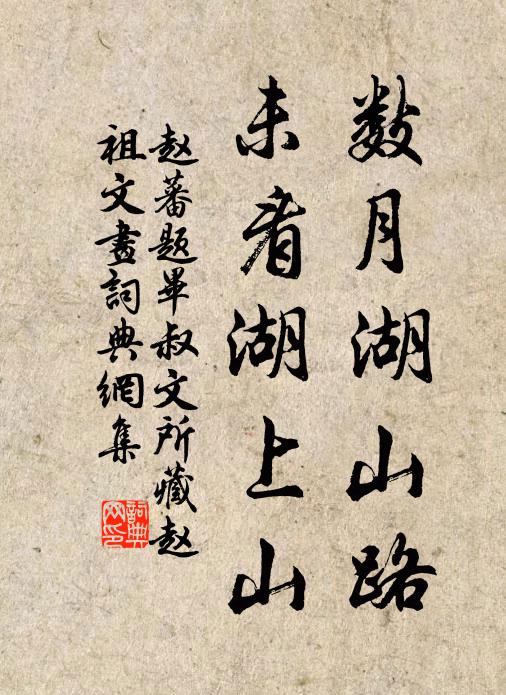 数月湖山路
未看湖上山
赵蕃题畢叔文所藏赵
祖文畫詞典網集
詞典
网印